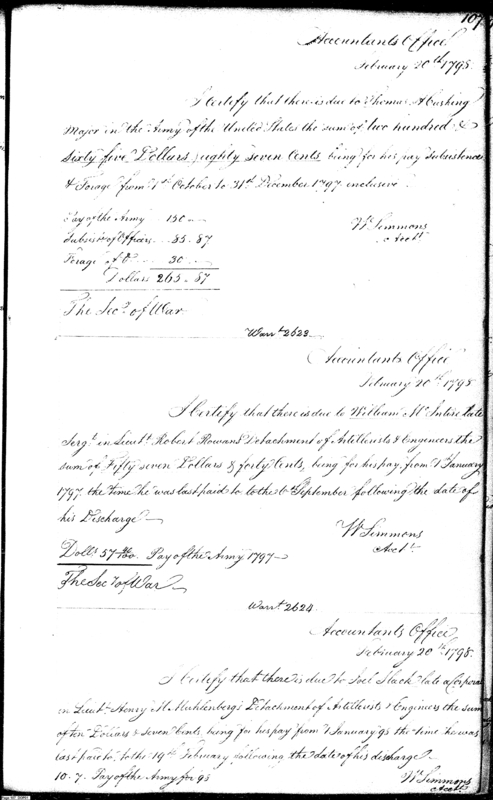 107
Accountants Office
February 20th 1798.
I certify that there is due to Thomas H Cushing
Major in the Army of the United States the sum of two hundred &
sixty five Dollars, eighty seven Cents, being for his pay Subsistence
& Forage from 1st October to 31st December 1797 inclusive.
Pay of the Army 150 ..
Subsis. of Officers .. 85 .. 87
Forage .. 30 ..
Dollars 265 .. 87
Wm Simmons
Acct
The Secy of War
Warrt 2623
Accountants Office
February 20th 1798
I Certify that there is due to William McIntire late
Sergt in Lieutt Robert Rowans Detachment of Artillerists & Engineers the
sum of Fifty seven Dollars & forty Cents, being for his pay from 1 January
1797 the time he was last paid to to the 6th September following the date of
his Discharge
Wm Simmons
Acct
Dolls 57 40/100. Pay of the Army 1797
The Secy of War
Warrt 2624
Accountants Office
February 20th 1798.
I Certify that there is due to Joel Slack late a Corporal
in Lieutt Henry M. Muhlenberg's Detachment of Artillerists & Engineers the sum
of ten Dollars & Seven Cents, being for his pay from 1 January 98 the time he was
last paid to, to the 19th February following the date of his discharge
10.7. Pay of the Army for 98
Wm Simmons
Acctt